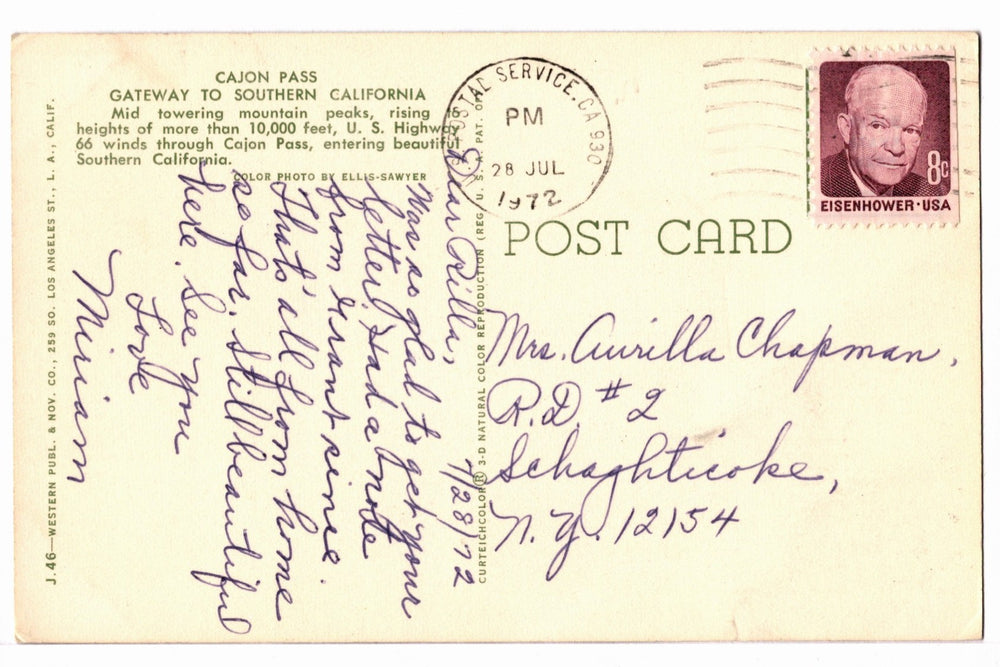 CAJON PASS
GATEWAY TO SOUTHERN CALIFORNIA
Mid towering mountain peaks, rising to
heights of more than 10,000 feet, U. S. Highway
66 winds through Cajon Pass, entering beautiful
Southern California.
COLOR PHOTO BY ELLIS-SAWYER
J.46—WESTERN PUBL. & NOV. CO., 259 SO. LOS ANGELES ST., L. A., CALIF.
CURTEICHCOLOR® 3-D NATURAL COLOR REPRODUCTION (REG. U. S. A. PAT. OFF
POSTAL SERVICE, CA 930
PM
28 JUL
1972
8c
EISENHOWER·USA
POST CARD
7/28/72
Dear Rilla,
Was so glad to get your
letter. Had a note
from Grant since.
That's all from home
so far. Still beautiful
here. See you
Love
Miriam
Mrs. Aurilla Chapman,
R.D. #2
Schaghticoke,
N.Y. 12154